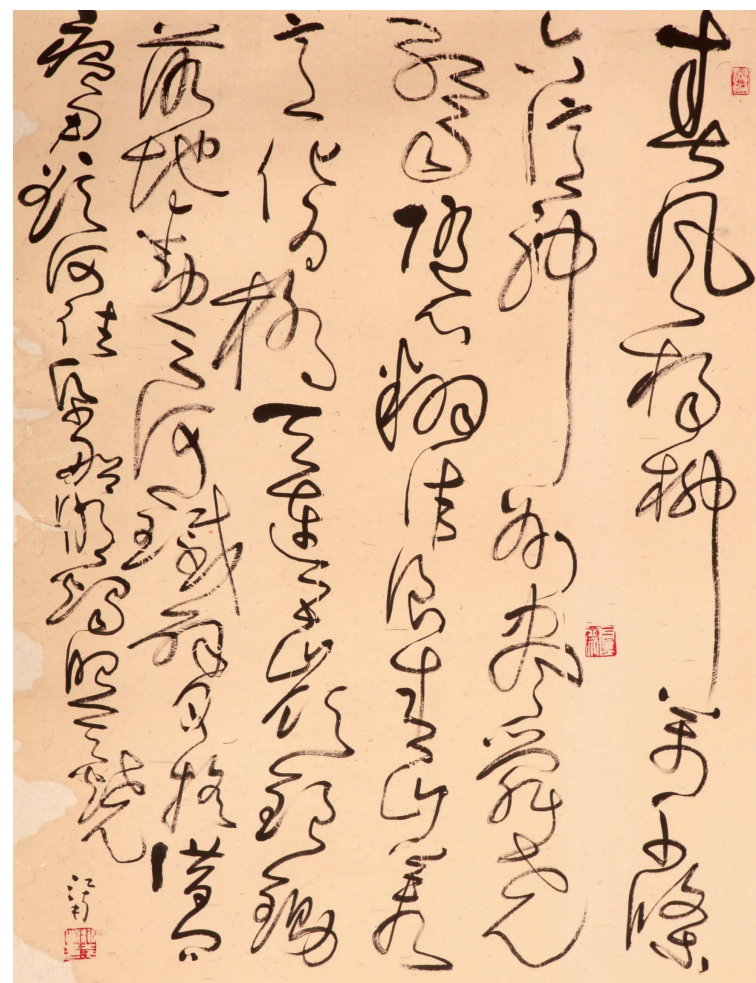 春风楊柳萬千條
六億神州盡舜堯
紅雨隨心翻作浪青山着
意化为橋天連五嶺銀鋤
落地動三河鐵臂搖借问
瘟君欲何往紙船明燭照天燒